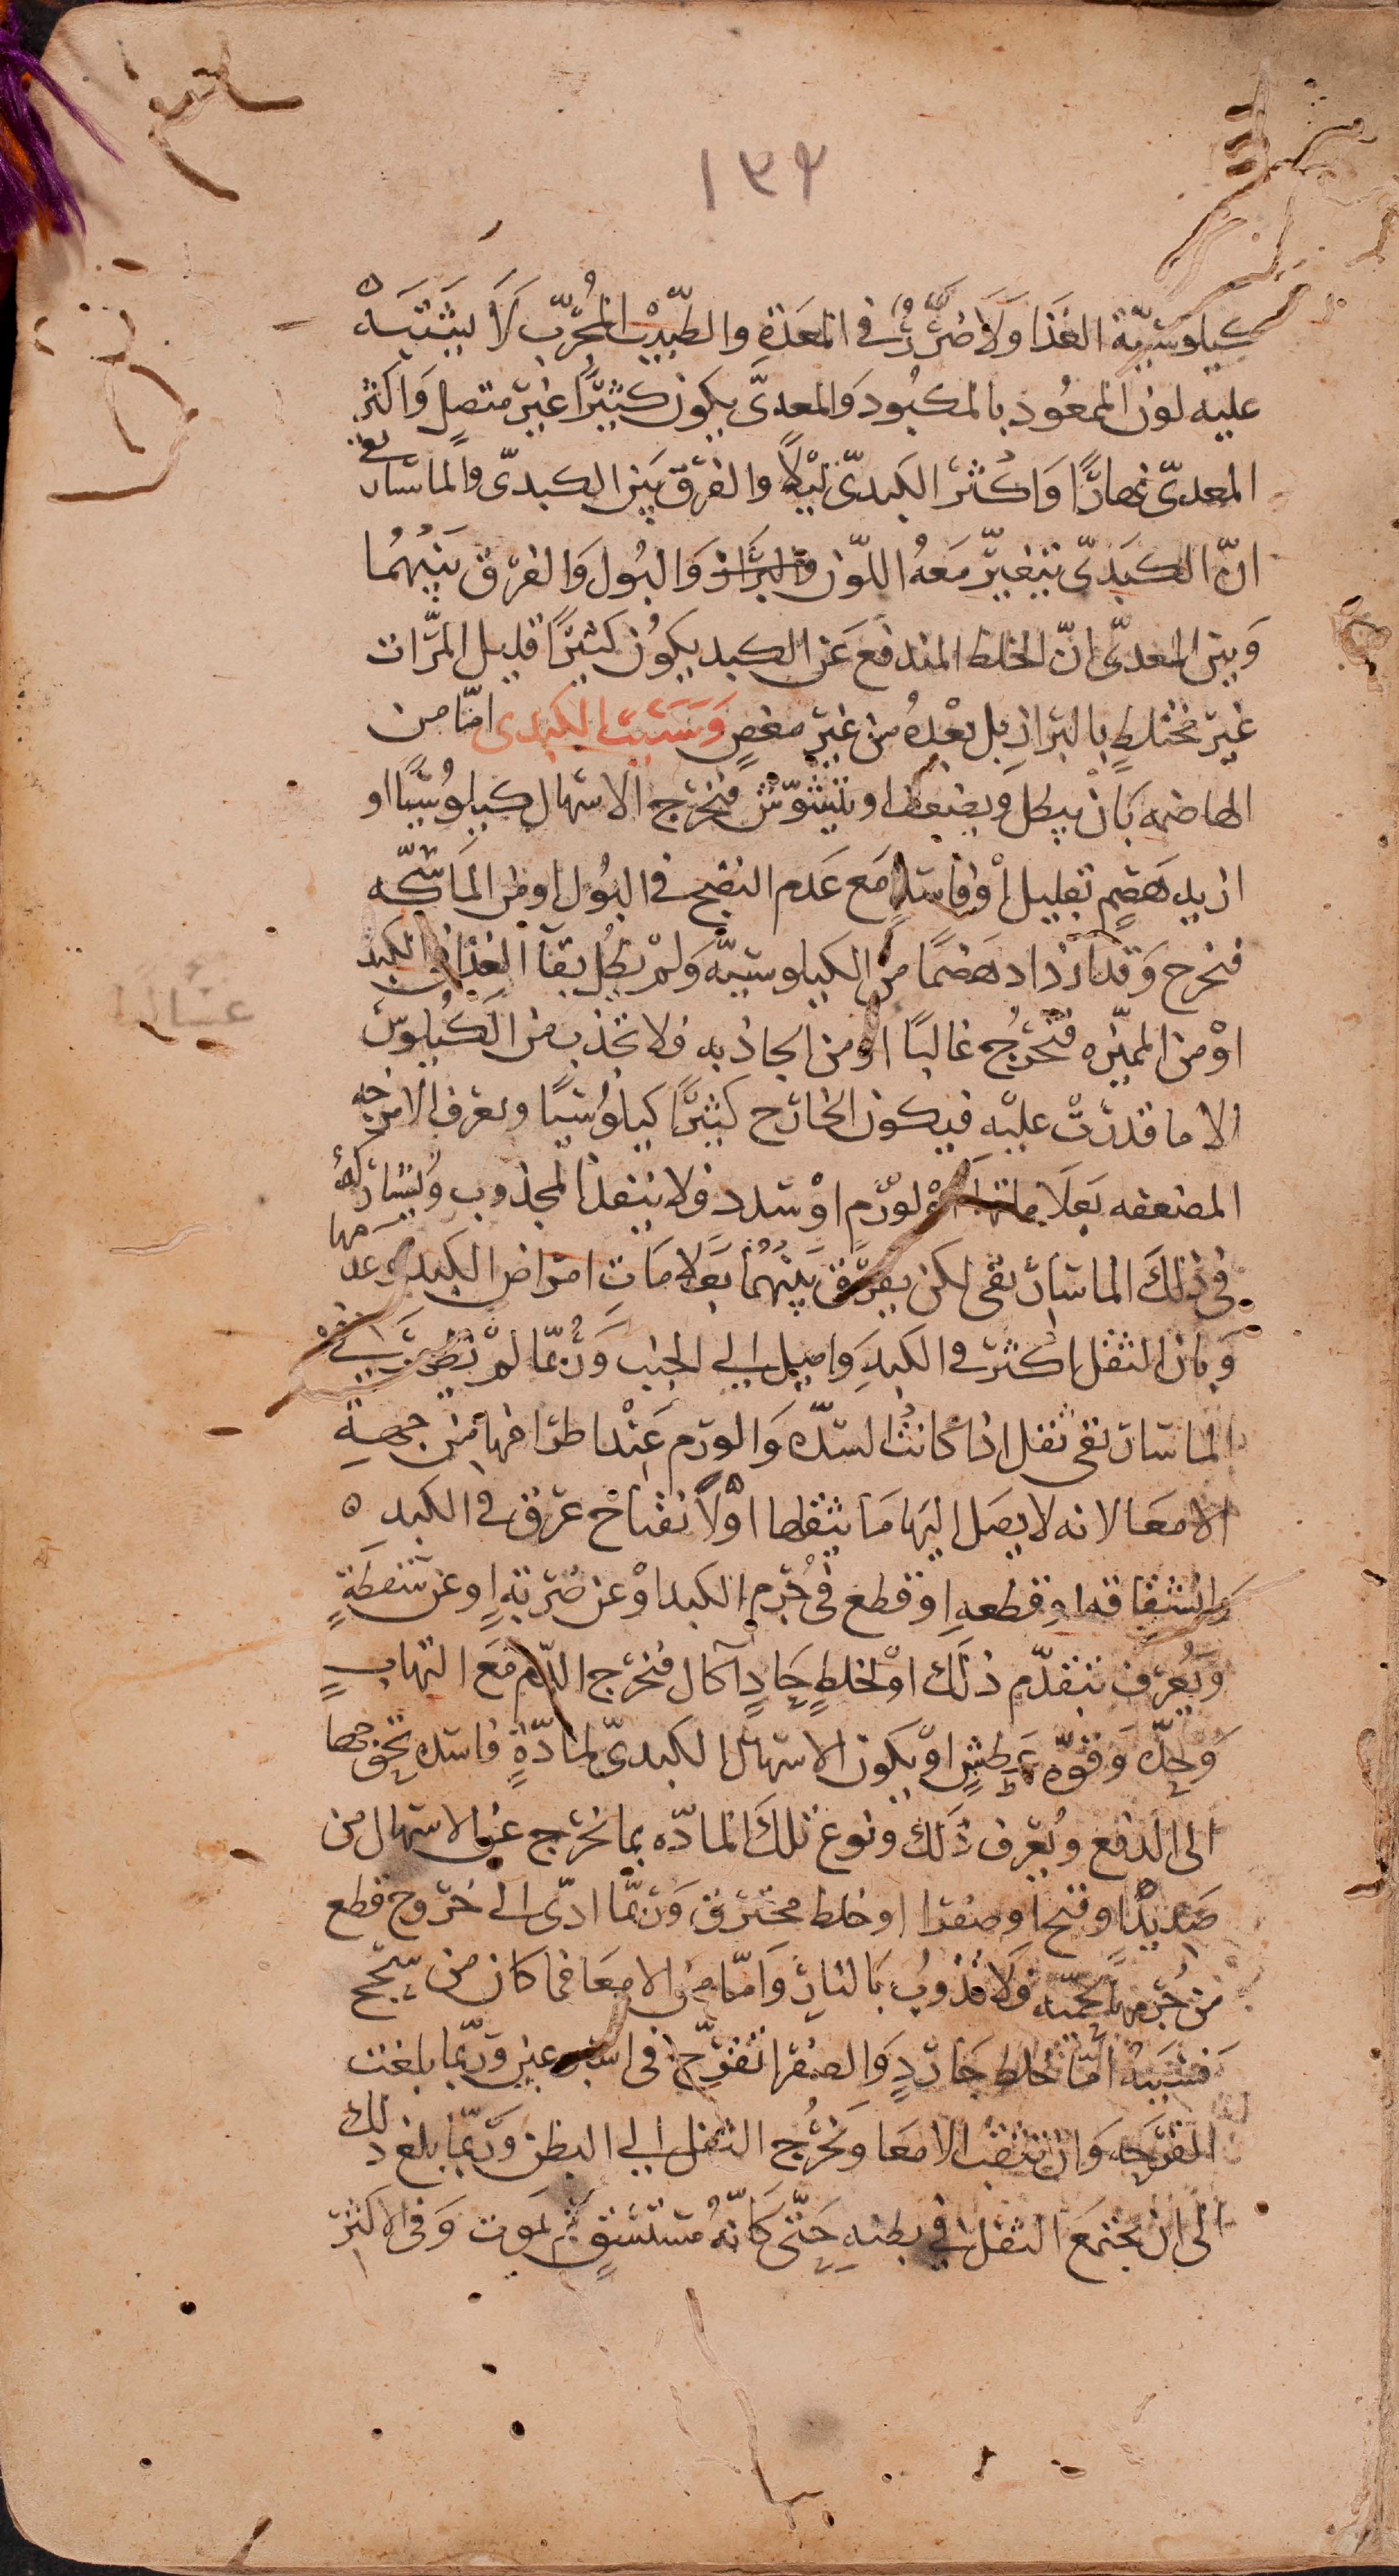 ١٣٤
كيلوسيّة الغذا ولا ضرر في المعدة والطبيب المجرّب لا يشتبه
عليه لون الممعود بالمكبود والمعديّ يكون كثيرًا غير متصل واكثر
المعديّ نهارًا واكثر الكبديّ ليلًا والفرق بين الكبديّ والماساريقي
انّ الكبديّ يتغيّر معه اللّون والبراز والبول والفرق بينهما
وبين المعديّ انّ الخلط المندفع عن الكبد يكون كثيرًا قليل المرّات
غير مختلط بالبراز بل بعده من غير مغص وسبب الكبدى امّا من
الهاضمه بان يبطل ويضعف او يتشوّش فيخرج الاسهال كيلوسيًا او
ازيد هضم بقليل او فاسدًا مع عدم النضج في البول او من الماسكه
فيخرج وقد ازداد هضمًا من الكيلوسيّه ولم يطل بقآ الغذا في الكبد
او من المميّزه فيخرج غالبًا او من الجاذبه فلا تجذب من الكيلوس
الا ما قدرت عليه فيكون الخارج كثيرًا كيلوسيًا ويعرف الامزجه
المضعفه بعلاماتها او لورم او سدد فلا ينفذ المجذوب ويشاركه
في ذلك الماساريقى لكن يفرّق بينهما بعلامات امراض الكبد وعدمها
وبان الثقل اكثر في الكبد واميل الي الجنب وربّما لم يظهر في
الماساريقى ثقل اذا كانت السدّه والورم عند اطرافها من جهة
الامعا لانه لا يصل اليها ما يثقلها او لانفتاح عرق في الكبد ه
وانشقاقه او قطعه او قطع في جرم الكبد او عن ضربة او عن سقطة
ويعرف بتقدّم ذلك او لخلط حادٍ آكال فيخرج الدّم مع التهاب
وحدّه وقوّه عطش او يكون الاسهال الكبديّ لمادّةٍ فاسده تحوجها
الى الدفع ويعرف ذلك ونوع تلك المادّه بما يخرج عن الاسهال من
صديدًا وقيح او صفرا او خلط محترق وربّما ادّى الي خروج قطع
من جرمها لحميّه ولا تذوب بالنار وامّا من الامعا فما كان من سحج
فسببه امّا خلط حاد والصفرا تقرّح في اسبوعين وربّما بلغت
القرحه وان تثقب الامعا ويخرج الثفل الي البطن وربّما بلغ ذلك
الى ان يجتمع الثفل في بطنه حتّى كانّه مستسقٍ ثم يموت وفي الاكثر